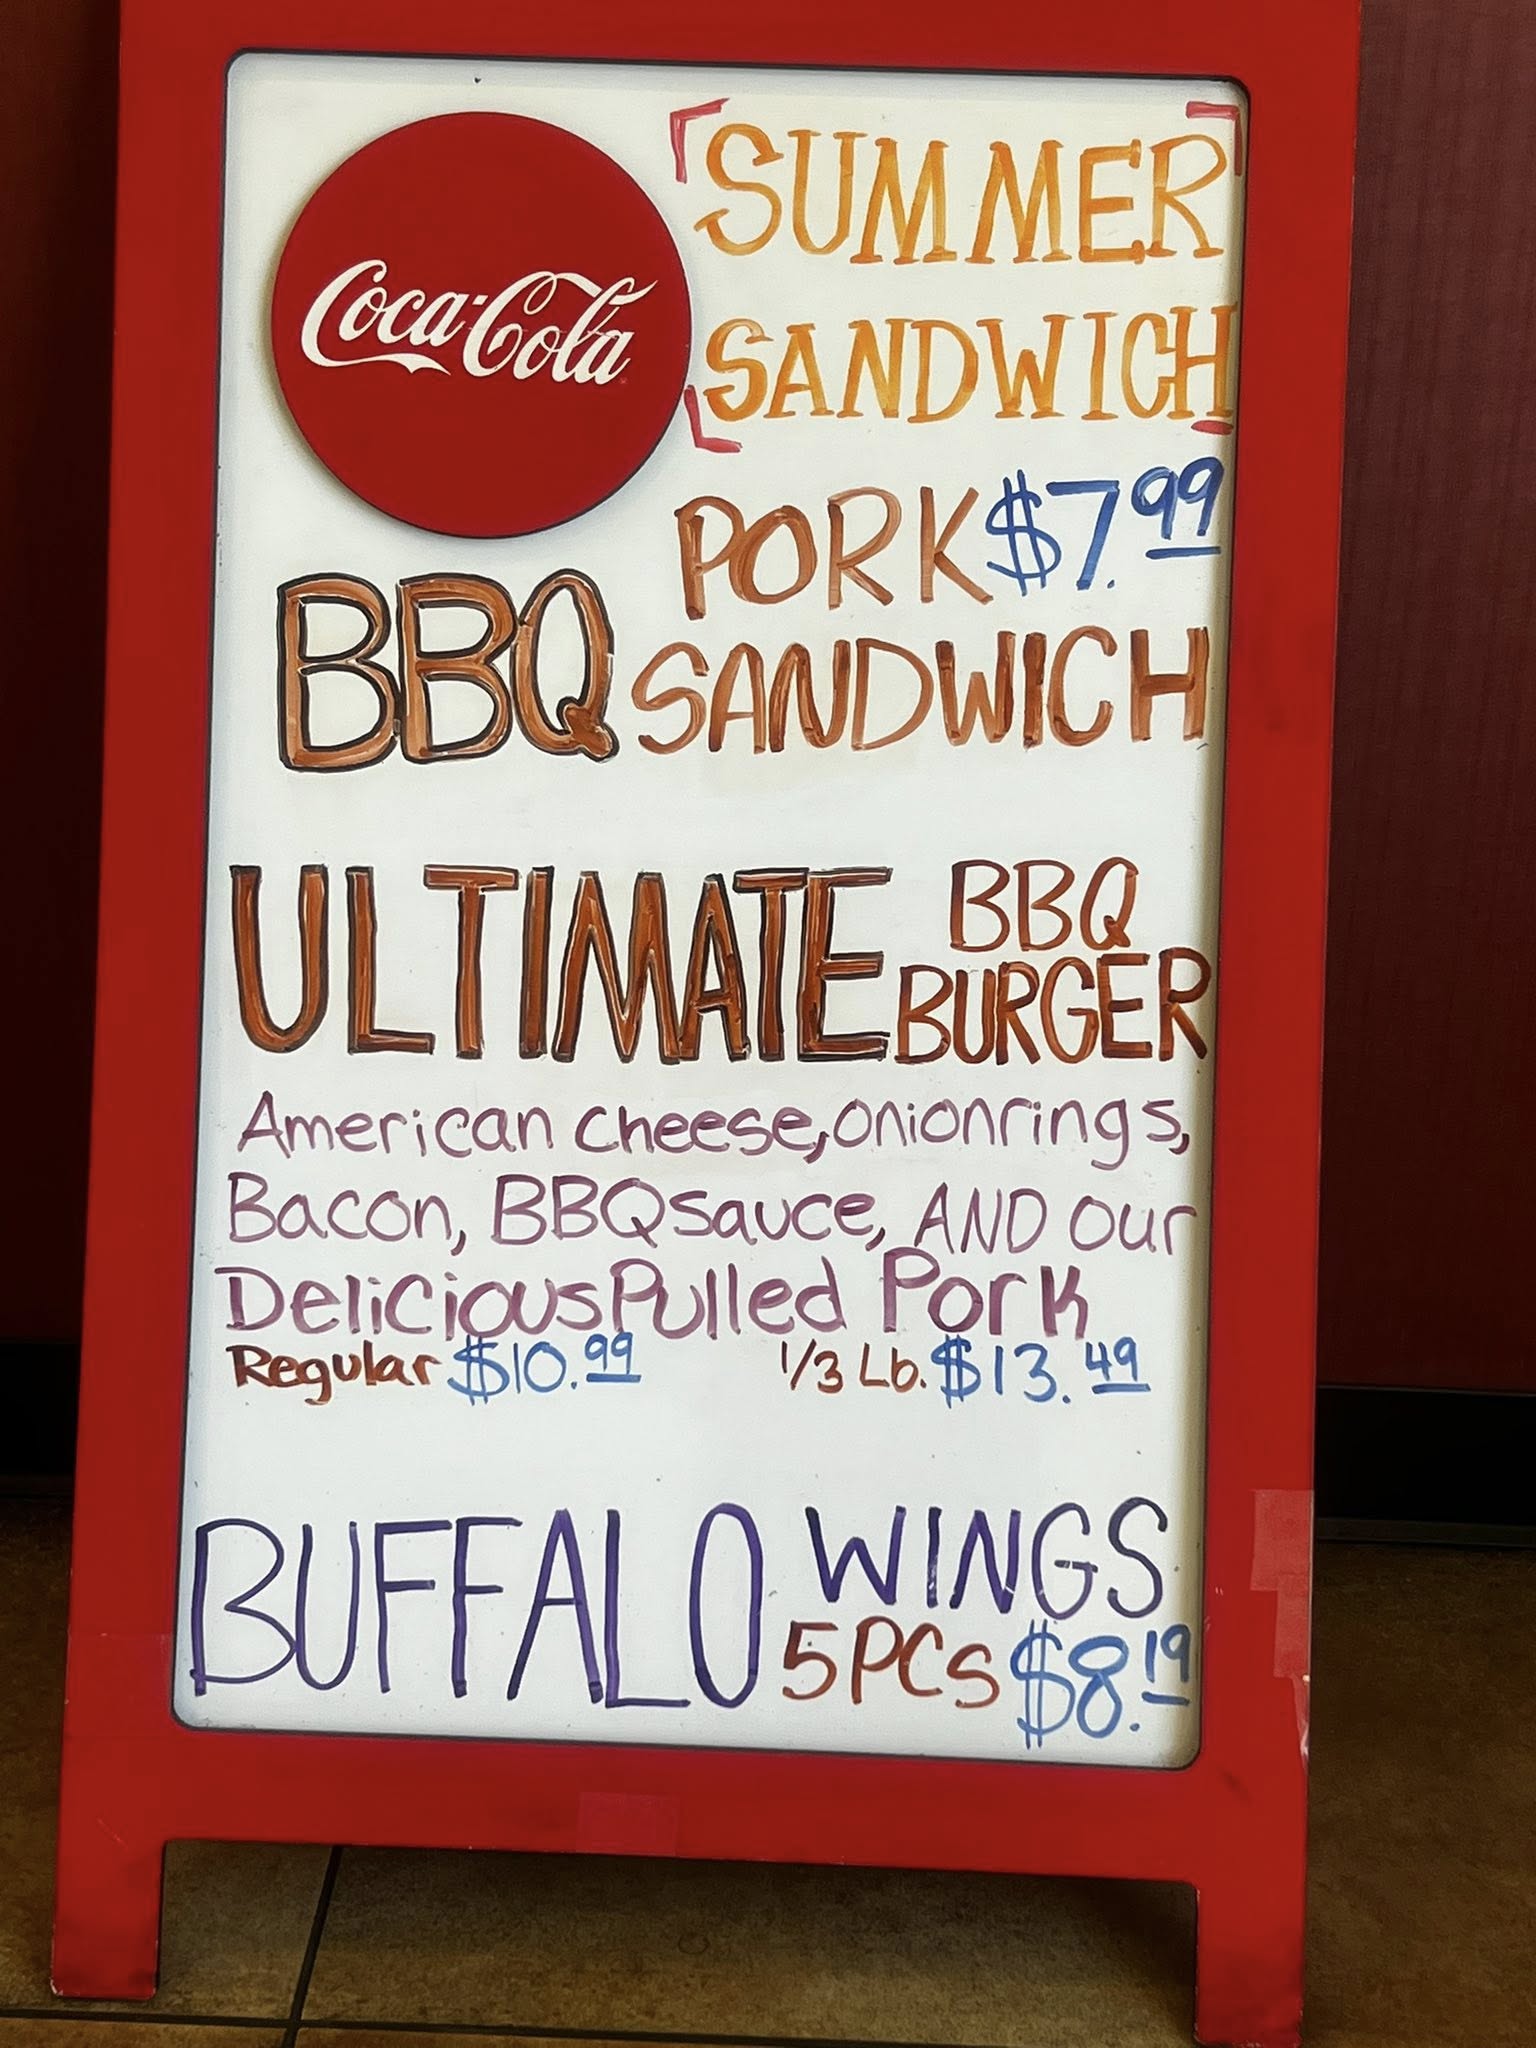 Coca-Cola
SUMMER
SANDWICH
PORK $7.99
BBQ SANDWICH
ULTIMATE BBQ
BURGER
American cheese, onion rings,
Bacon, BBQ sauce, AND our
Delicious Pulled Pork
Regular $10.99 1/3 Lb. $13.49
BUFFALO WINGS
5PCs $8.19